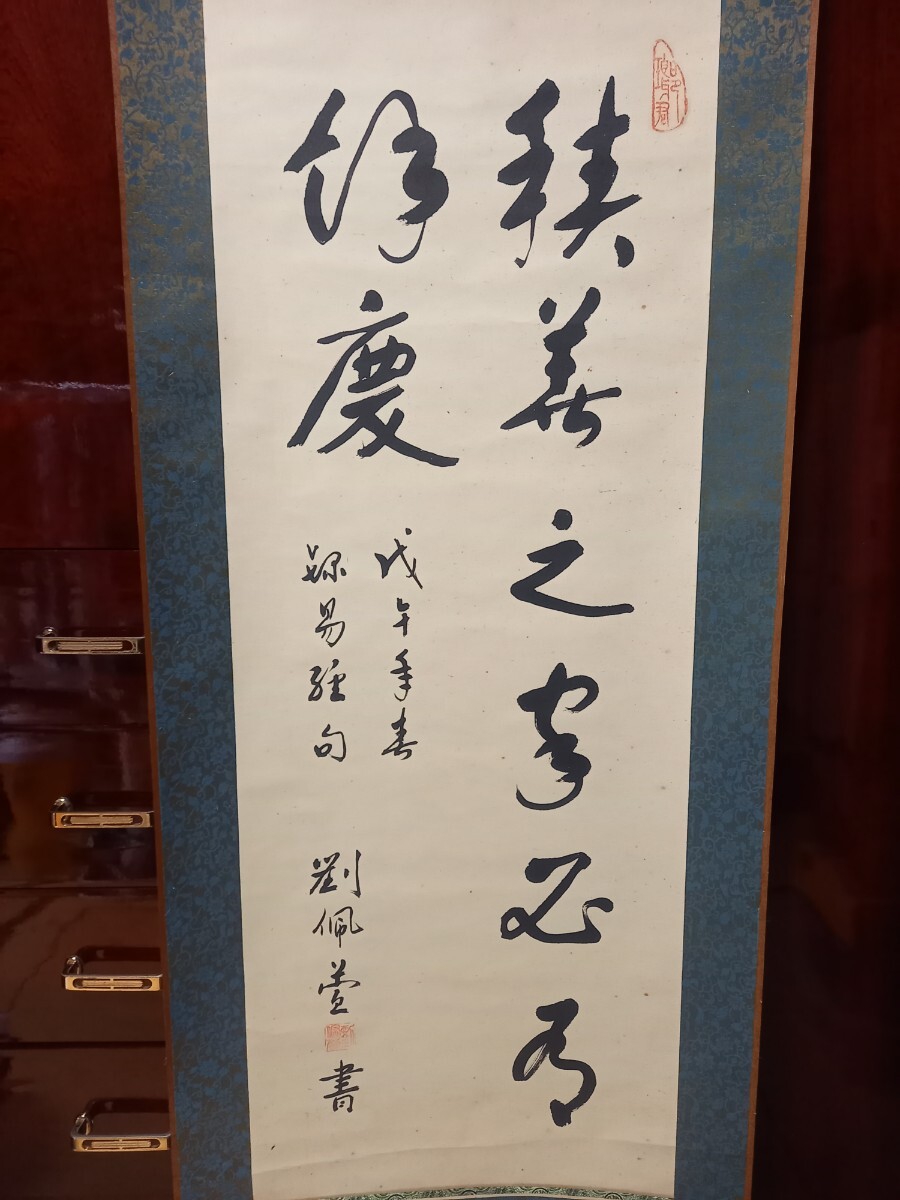 積善之家必有
餘慶
戊午年春
錄易經句
劉佩萱
書